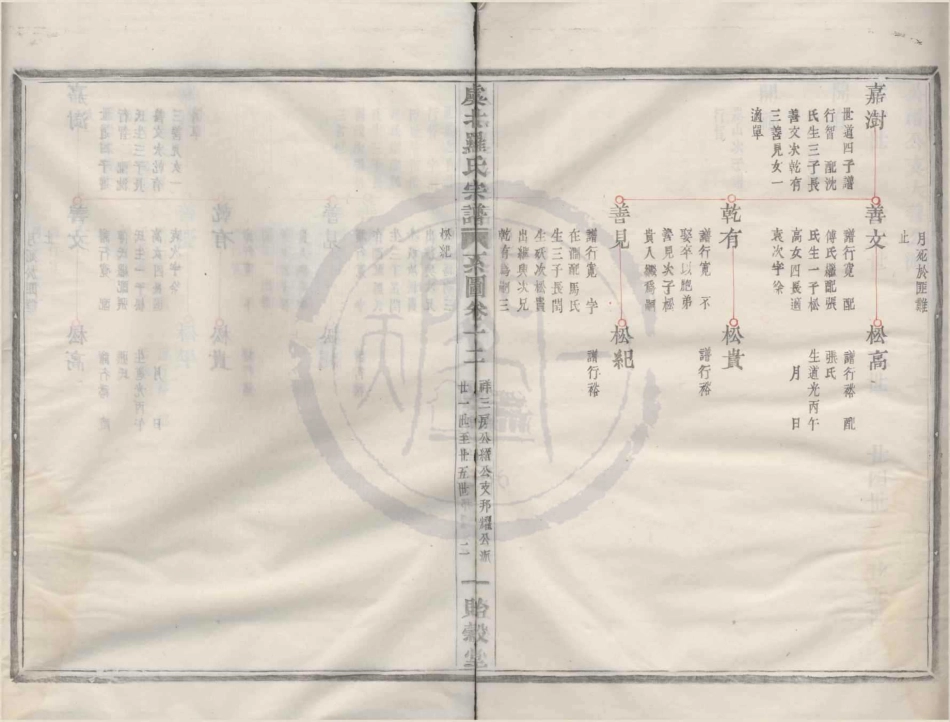 嘉澍
世道四子譜
行智　配沈
氏生三子長
善文次乾有
三善見女一
適單
善文
譜行寬　配
傅氏繼配張
氏生一子松
高女四長適
袁次字徐
乾有
譜行寬　不
娶卒以胞弟
善見次子松
貴人繼為嗣
善見
譜行寬　字
在淵配馬氏
生三子長閏
生殀次松貴
出繼與次兄
乾有為嗣三
松紀
松高
譜行裕　配
張氏
生道光丙午
月　日
松貴
譜行裕
松紀
譜行裕
月死於匪難
止
虞北羅氏宗譜
系圖卷十二
廿一世至廿五世
一
貽穀堂